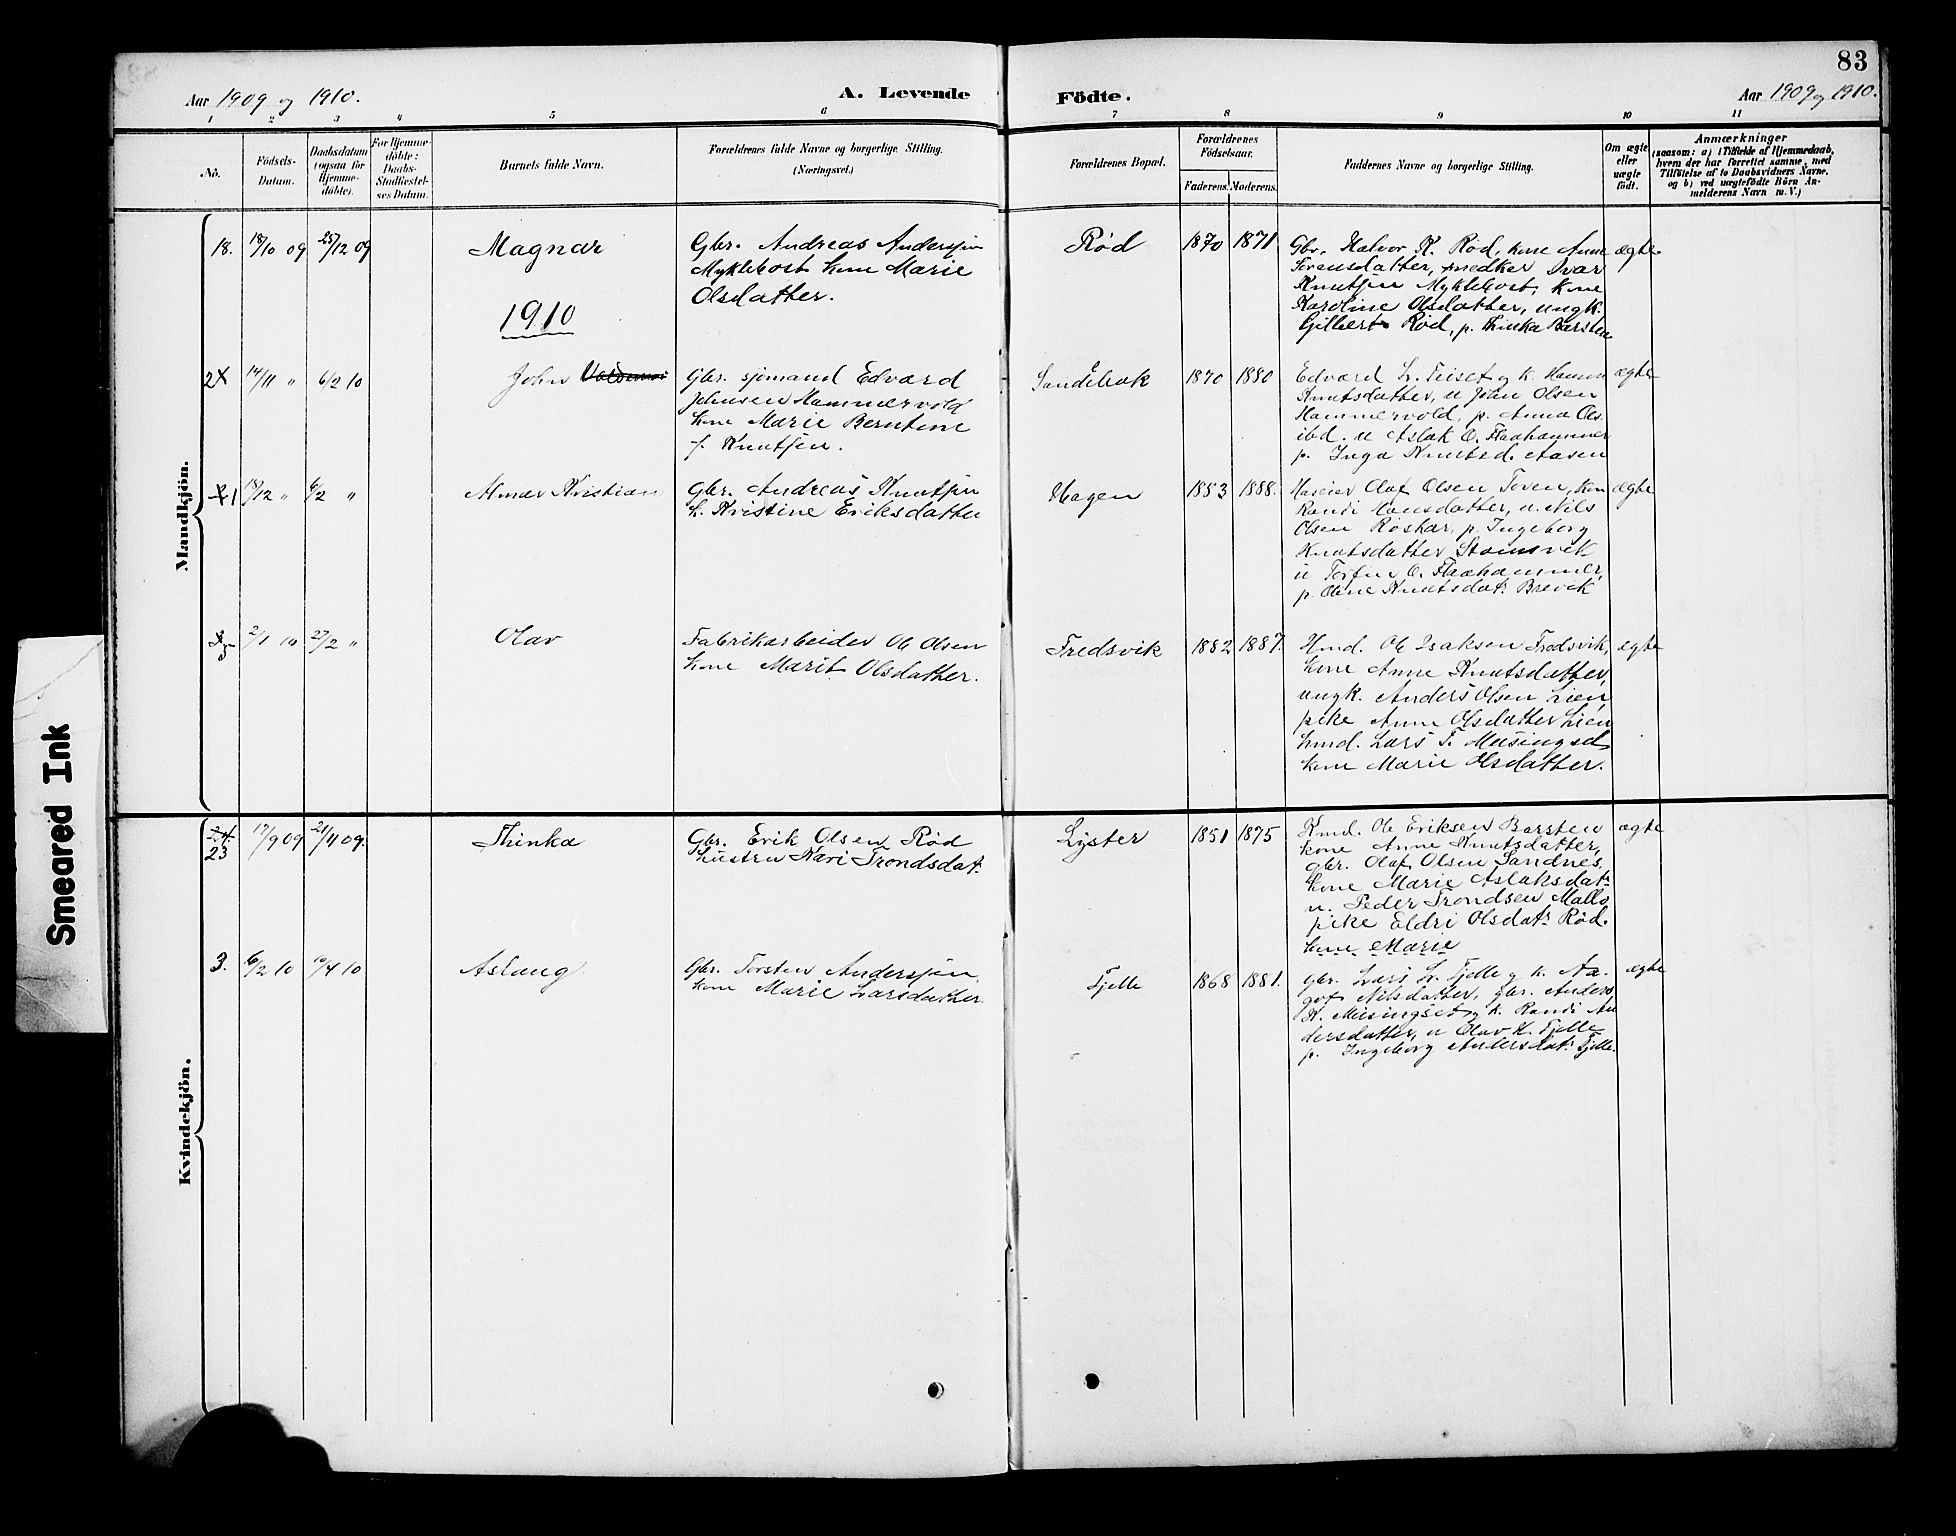 83
Aar 1909 og 1910.
A. Levende
Födte.
Aar 1909 og 1910.
1 2 3 4 5 6 7 8 9 10 11
No.
Födsels-
Datum.
Daabsdatum
(ogsaa for
Hjemme-
döbte).
For Hjemme-
döbte:
Daabs-
Stadfæstel-
ses Datum.
Barnets fulde Navn.
Forældrenes fulde Navne og borgerlige Stilling.
(Næringsvei.)
Forældrenes Bopæl.
Forældrenes
Födselsaar.
Faderens. Moderens.
Faddernes Navne og borgerlige Stilling.
Om ægte
eller
uægte
født.
Anmærkninger
(saasom: a) i Tilfælde af Hjemmedaab,
hvem der har forrettet samme, med
Tilföielse af to Daabsvidners Navne,
og b) ved uægtefödte Börn An-
melderens Navn m. V.)
Mandkjön.
18. 18/10 09 25/12 09
Magnar
Gbr. Andreas Anderssen
Myklebost kone Marie
Olsdatter.
Rød
1870 1871
Gbr. Halvor K. Rød, kone Anne
Sørensdatter, snedker Ivar
Knutsen Myklebost, kone
Karoline Olsdatter, ungk.
Gilbert Rød, p. Thinka Barsten
ægte
1910
2 14/11 " 6/2 10
John Valdemar
Gbr. sjömand Edvard
Johnsen Hammervold
kone Marie Berntine
f. Knutsen.
Sandebak
1870 1880
Edvard L. Teiset og k. Hanna
Knutsdatter, u John Olsen
Hammervold, p. Anna Ols
ibd. u Aslak O. Flaahammer
p. Inga Knutsd. Aasen
ægte
1 13/12 " 6/2 "
Almar Kristian
Gbr. Andreas Knutsen
k. Kristine Eriksdatter
Hagen
1853 1888.
Huseier Olaf Olsen Toven, kone
Randi Hansdatter, u. Nils
Olsen Røshar, p. Ingeborg
Knutsdatter Stomsvik
u Torfin O. Flaahammer,
p. Oline Knutsdat. Brevik
ægte
5 2/1 10 27/2 "
Olav
Fabrikarbeider Ole Olsen
kone Marit Olsdatter.
Fredsvik
1882 1887.
Hmd. Ole Isaksen Fredsvik,
kone Anne Knutsdatter,
ungk. Anders Olsen Lien,
pike Anne Olsdatter Lien
hmd. Lars T. Meisingset
kone Marie Olsdatter.
ægte
Kvindekjön.
24.
23 17/9 09 21/11 09.
Thinka
Gbr. Erik Olsen Rød
hustru Kari Trondsdat.
Lyster
1851 1875
Kmd. Ole Eriksen Barsten
kone Anne Knutsdatter,
gbr. Olaf Olsen Sandnes,
kone Marie Aslaksdatr
u. Peder Trondsen Mallo
pike Eldri Olsdatr Rød.
kone Marie
ægte
3. 6/2 10 10/4 10
Aslaug
Gbr. Torsten Anderssen,
kone Marie Larsdatter.
Fjelle
1868 1881.
gbr. Lars L. Fjelle og k. Aa-
got Nilsdatter, gbr. Anders
K. Meisingset og k. Randi An
dersdatter, u Olav H. Fjelle
p. Ingeborg Andersdat. Fjelle.
ægte
Smeared Ink